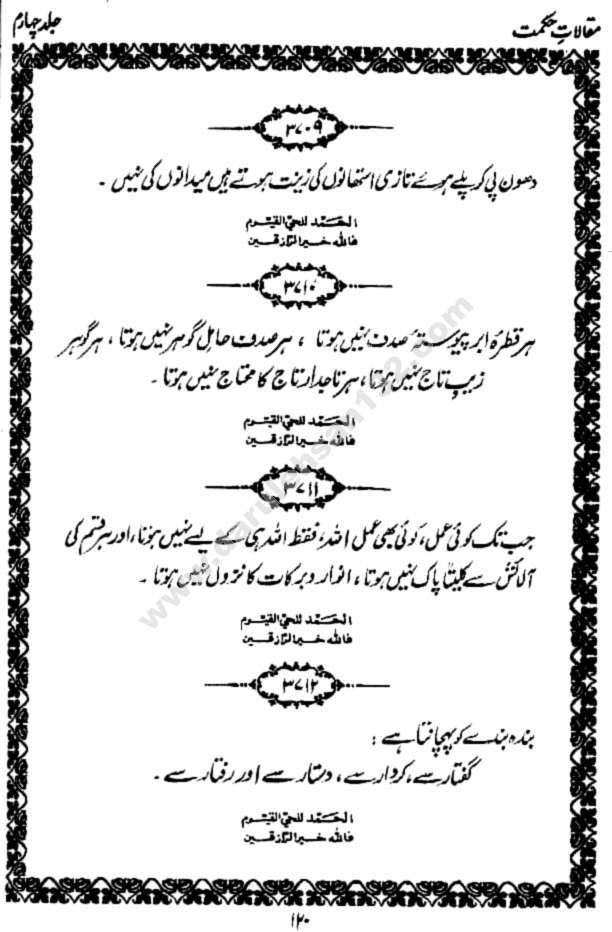 مقالاتِ حکمت
جلد چہارم
۳۷۰۹
دھون پی کر پلے ہوئے تازی استھانوں کی زینت ہوتے ہیں میدانوں کی نہیں ۔
الحَمد للحیّ القیّوم
فاللّٰہ خیر الرّازقین
۳۷۱۰
ہر قطرۂ ابر پیوستۂ صدف نہیں ہوتا ، ہر صدف حاملِ گوہر نہیں ہوتا ، ہر گوہر
زیبِ تاج نہیں ہوتا ، ہر تاجدار تاج کا محتاج نہیں ہوتا ۔
الحَمد للحیّ القیّوم
فاللّٰہ خیر الرّازقین
۳۷۱۱
جب تک کوئی عمل ، کوئی بھی عمل اللہ ، فقط اللہ ہی کے لیے نہیں ہوتا ، اور ہر قسم کی
آلائش سے کلیتاً پاک نہیں ہوتا ، انوار و برکات کا نزول نہیں ہوتا ۔
الحَمد للحیّ القیّوم
فاللّٰہ خیر الرّازقین
۳۷۱۲
بندہ بندے کو پہچانتا ہے :
گفتار سے ، کردار سے ، دستار سے اور رفتار سے ۔
الحَمد للحیّ القیّوم
فاللّٰہ خیر الرّازقین
۱۲۰